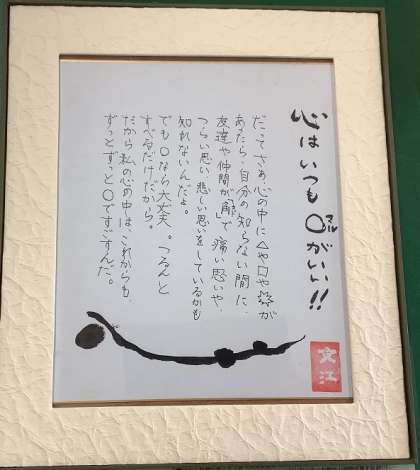 心はいつも〇がいい!!
マル
だってさぁ心の中に△や□や☆が
あったら、自分の知らない間に、
友達や仲間が「角」で、痛い思いや、
つらい思い、悲しい思いをしているかも
知れないんだよ。
でも〇なら大丈夫。つるんと
すべるだけだから。
だから私の心の中は、これからも、
ずっとずっと〇ですごすんだ。
文江